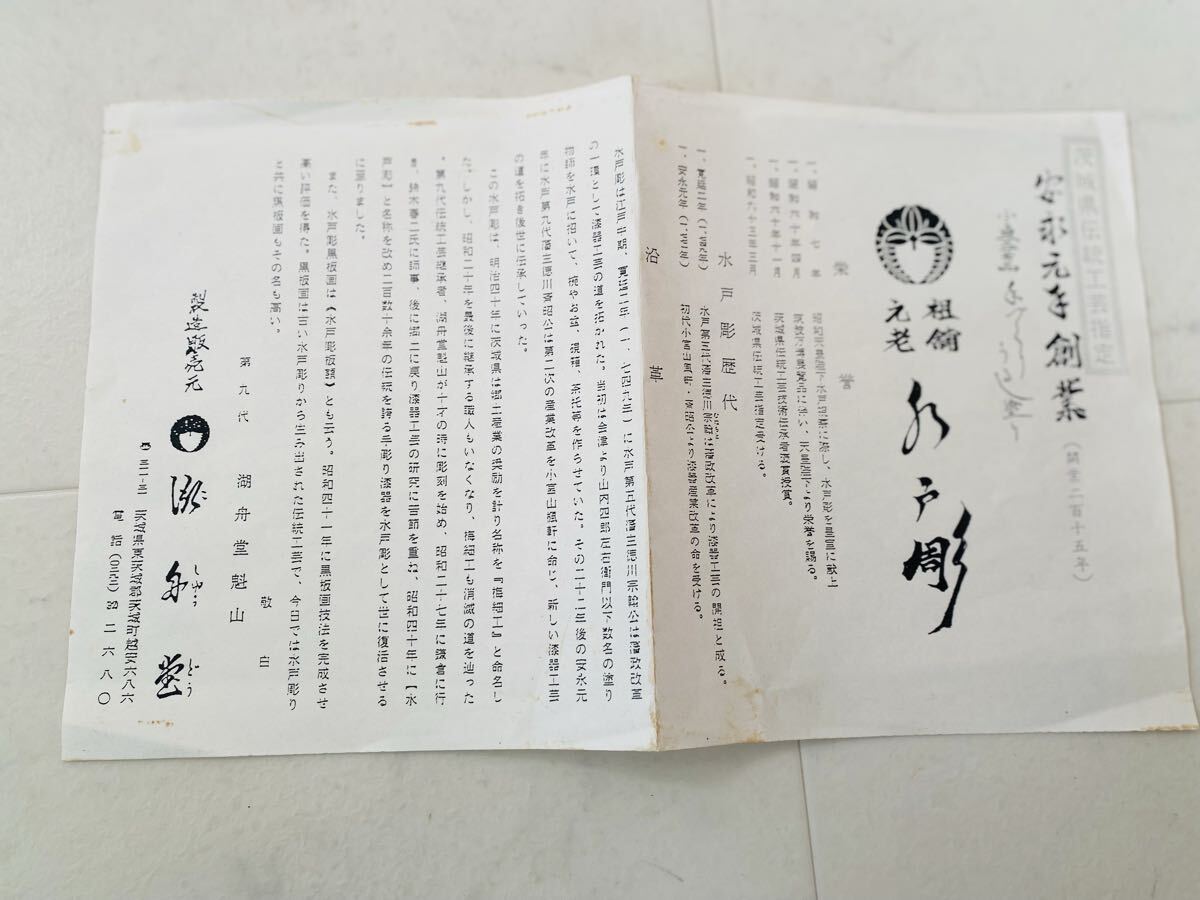 茨城県伝統工芸指定
安永元年創業(開業二百十五年)
祖舗
元老
水戸彫
栄誉
一、昭和七年 昭和天皇陛下水戸
一、昭和六十年四月
一、昭和六十年十一月 茨城県伝統工芸技術伝承者褒賞授賞。
一、昭和六十三年三月 茨城県伝統工芸指定を受ける。
水戸彫歴代
一、寛延二年(一七四九年) 水戸第五代藩主徳川宗翰は藩政改革により漆器工芸の開祖と成る。
一、安永元年(一七七二年) 初代小宮山風軒・斉昭公より漆器産業改革の命を受ける。
沿革
水戸彫は江戸中期、寛延二年(一、七四九年)に水戸第五代藩主徳川宗翰公は藩政改革
の一環として漆器工芸の道を拓かれた。当初は会津より山内四郎左右衛門以下数名の塗り
物師を水戸に招いて、椀やお盆、硯箱、茶托等を作らせていた。その二十二年後の安永元
年に水戸第九代藩主徳川斉昭公は第二次の産業改革を小宮山楓軒に命じ、新しい漆器工芸
の道を拓き後世に伝承していった。
この水戸彫は、明治四十年に茨城県は郷土産業の奨励を計り名称を『梅細工』と命名し
た。しかし、昭和二十年を最後に継承する職人もいなくなり、梅細工も消滅の道を辿った
。第九代伝統工芸継承者、湖舟堂魁山が十才の時に彫刻を始め、昭和二十七年に鎌倉に行
き、鈴木春二氏に師事、後に郷土に戻り漆器工芸の研究に苦節を重ね、昭和四十年に【水
戸彫】と名称を改め二百数十余年の伝統を誇る手彫り漆器を水戸彫として世に復活させる
に至りました。
また、水戸彫黒板画は(水戸彫板額)とも云う。昭和四十一年に黒板画技法を完成させ
高い評価を得た。黒板画は古い水戸彫りから生み出された伝統工芸で、今日では水戸彫り
と共に黒板画もその名も高い。
敬白
第九代 湖舟堂魁山
製造販売元
舟堂
しゅう どう
茨城県東茨城郡茨城町越安六八六
電話
二六八〇